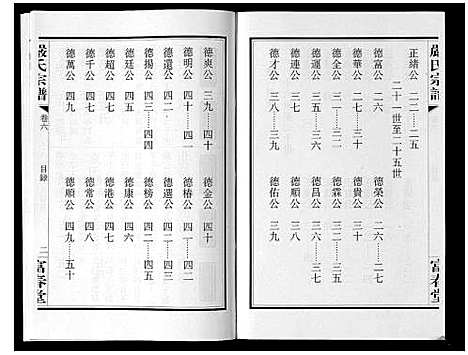 嚴氏宗譜
富春堂
正緒公 二一—二五
二十一世至二十五世
德富公 二六
德榮公 二六—二七
德華公 二七—三〇
德貴公 三十
德全公 三〇—三二
德霖公 三二—三六
德運公 三六—三七
德昌公 三六—三七
德連公 三七—三八
德順公 三八
德才公 三八—三九
德佑公 三九
德爽公 三九—四十
德金公 四十
德明公 四十—四一
德椿公 四一—四二
德遺公 四二
德選公 四二—四三
德揚公 四三—四四
德榜公 四二—四四
德廷公 四五
德康公 四五—四六
德超公 四七
德港公 四七
德千公 四七
德常公 四八
德萬公 四九
德順公 四九—五十
嚴氏宗譜
卷六
目錄
二
富春堂